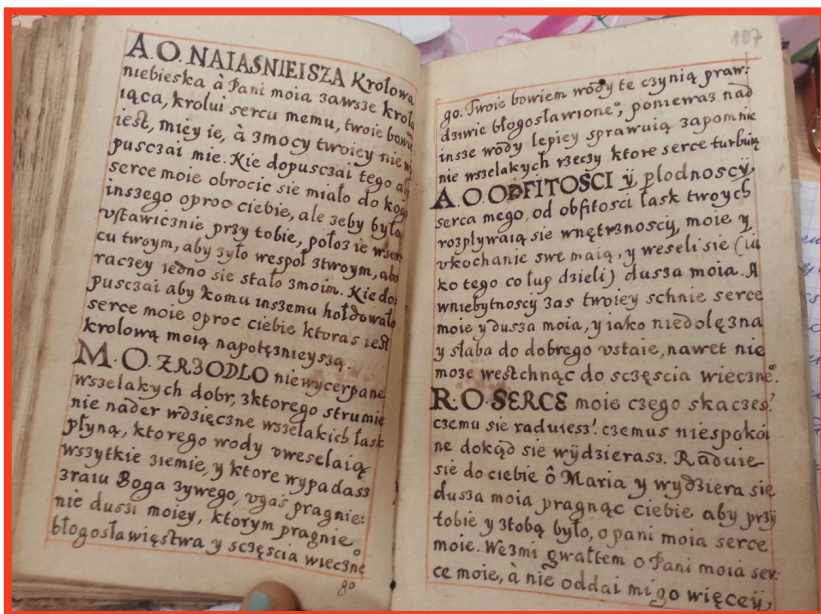 A. O. NAIASNIEISZA Krolowa
niebieska à Pani moia zawsze krolu
iąca, krolui sercu memu, twoie bowiē
iest, miey ie, à zmocy twoiey nie wy
pusczai mie. Nie dopusczai tego aby
serce moie obrocic sie miało do kogo
inszego oproc ciebie, ale zeby było
vstawicznie przy tobie, połoz ie w ser
cu twoym, aby zyło wespoł z twoym, abo
raczey iedno sie stało z moim. Nie do
pusczai aby komu inszemu hołdowało
serce moie oproc ciebie ktoras iest
krolową moią napotęznieyszą.
M. O. ZRZODLO niewycerpane
wszelakych dobr, z ktorego strumie
nie nader wdzięczne wszelakich łask
płyną, ktorego wody vweselaią
wszytkie ziemie, y ktore wypadasz
z raiu Boga zywego, vgaś pragnie:
nie duszi moiey, ktorym pragnie
błogosławięstwa y sczęscia wieczne
go
107
go. Twoie bowiem wody te czynią praw:
dziwie błogosławione, poniewaz nad
insze wody lepiey sprawuią zapomnie
nie wszelakych rzeczy ktore serce turbuią
A. O. ODFITOŚCI ÿ płodnoscÿ,
serca mego, od obfitosci łask twoych
rozpływaią sie wnętrznoscÿ, moie y
vkochanie swe maią, y weseli sie (ia
ko tego co łup dzieli) dusza moia. A
w niebytnoscy zas twoiey schnie serce
moie y dusza moia, y iako niedolęzna
y słaba do dobrego vstaie, nawet nie
moze westchnąc do sczęscia wieczne°.
R. O. SERCE moie czego skaczes?
czemu sie raduiesz? czemus niespokoi
ne dokąd sie wÿdzierasz. Raduie
sie do ciebie ô Maria y wydziera się
dusza moia pragnąc ciebie aby przÿ
tobie y z tobą było, o pani moia serce
moie. Wezmi gwałtem o Pani moia ser:
ce moie, à nie oddai mi go więceÿ,